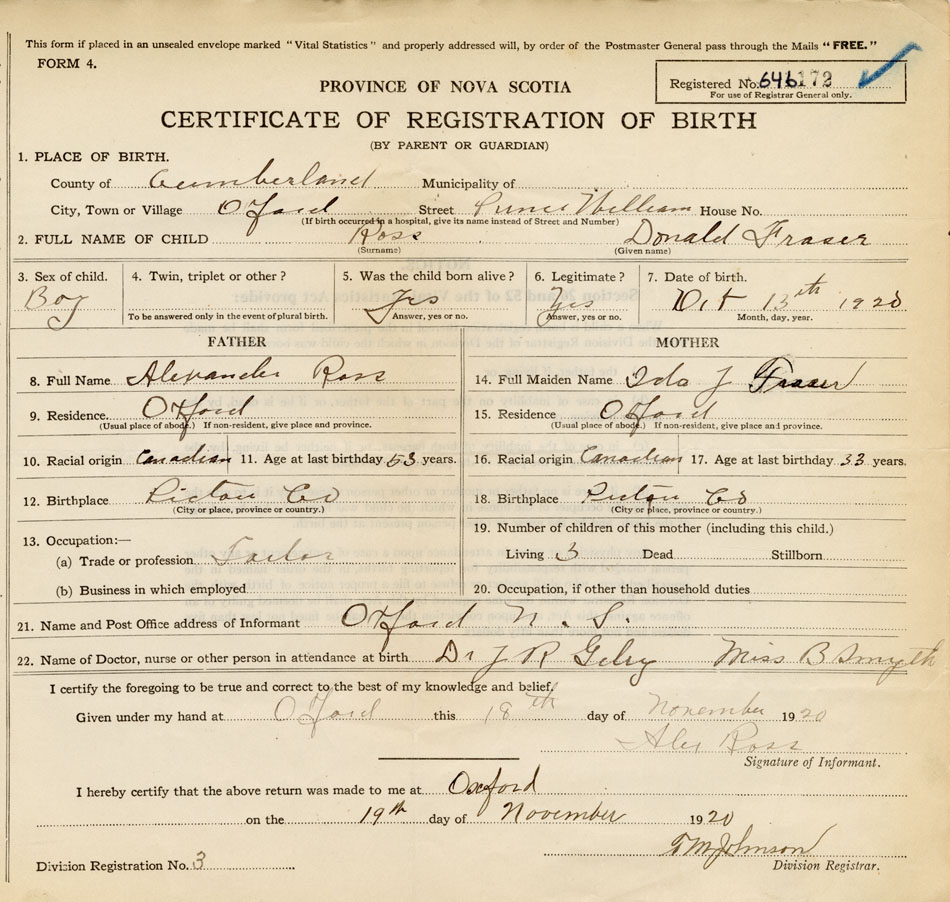 This form if placed in an unsealed envelope marked "Vital Statistics" and properly addressed will, by order of the Postmaster General pass through the Mails "FREE."
FORM 4.
Registered No. 646172
For use of Registrar General only.
PROVINCE OF NOVA SCOTIA
CERTIFICATE OF REGISTRATION OF BIRTH
(BY PARENT OR GUARDIAN)
1. PLACE OF BIRTH.
County of Cumberland Municipality of
City, Town or Village Oxford Street Prince William House No.
(If birth occurred in a hospital, give its name instead of Street and Number)
2. FULL NAME OF CHILD Ross Donald Fraser
(Surname) (Given name)
3. Sex of child. 4. Twin, triplet or other? 5. Was the child born alive? 6. Legitimate? 7. Date of birth.
Boy Yes Yes Oct 13th 1920
To be answered only in the event of plural birth. Answer, yes or no. Answer, yes or no. Month, day, year.
FATHER MOTHER
8. Full Name Alexander Ross 14. Full Maiden Name Ida J Fraser
9. Residence. Oxford 15. Residence Oxford
(Usual place of abode.) If non-resident, give place and province. (Usual place of abode.) If non-resident, give place and province.
10. Racial origin Canadian 11. Age at last birthday 53 years. 16. Racial origin Canadian 17. Age at last birthday 33 years.
12. Birthplace Pictou Co 18. Birthplace Pictou Co
(City or place, province or country.) (City or place, province or country.)
13. Occupation:— 19. Number of children of this mother (including this child.)
(a) Trade or profession Tailor Living 3 Dead Stillborn
(b) Business in which employed 20. Occupation, if other than household duties
21. Name and Post Office address of Informant Oxford N. S.
22. Name of Doctor, nurse or other person in attendance at birth Dr J R Miss B Smyth
I certify the foregoing to be true and correct to the best of my knowledge and belief,
Given under my hand at Oxford this 18th day of November 1920
Alex Ross
Signature of Informant.
I hereby certify that the above return was made to me at Oxford
on the 19th day of November 1920
T M Johnson
Division Registration No. 3 Division Registrar.